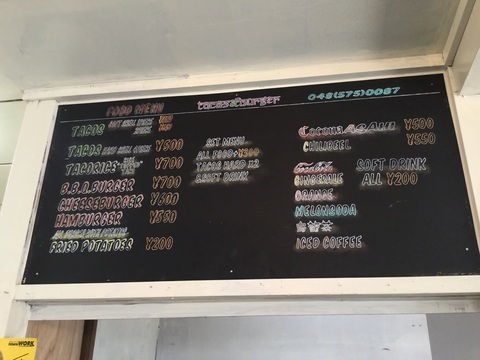 FOOD MENU
TACOS & BURGER
048(575)0087
TACOS
TACOS ¥500
TACORICE ¥700
B.B.Q.BURGER ¥700
CHEESEBURGER ¥600
HAMBURGER ¥550
FRIED POTATOES ¥200
SET MENU
ALL FOOD+¥300
TACOS HARD X2
& SOFT DRINK
Corona ASAHI ¥500
CHILIBEEL ¥550
SOFT DRINK
ALL ¥200
GINGERALE
ORANGE
MELONSODA
ICED COFFEE
WORK